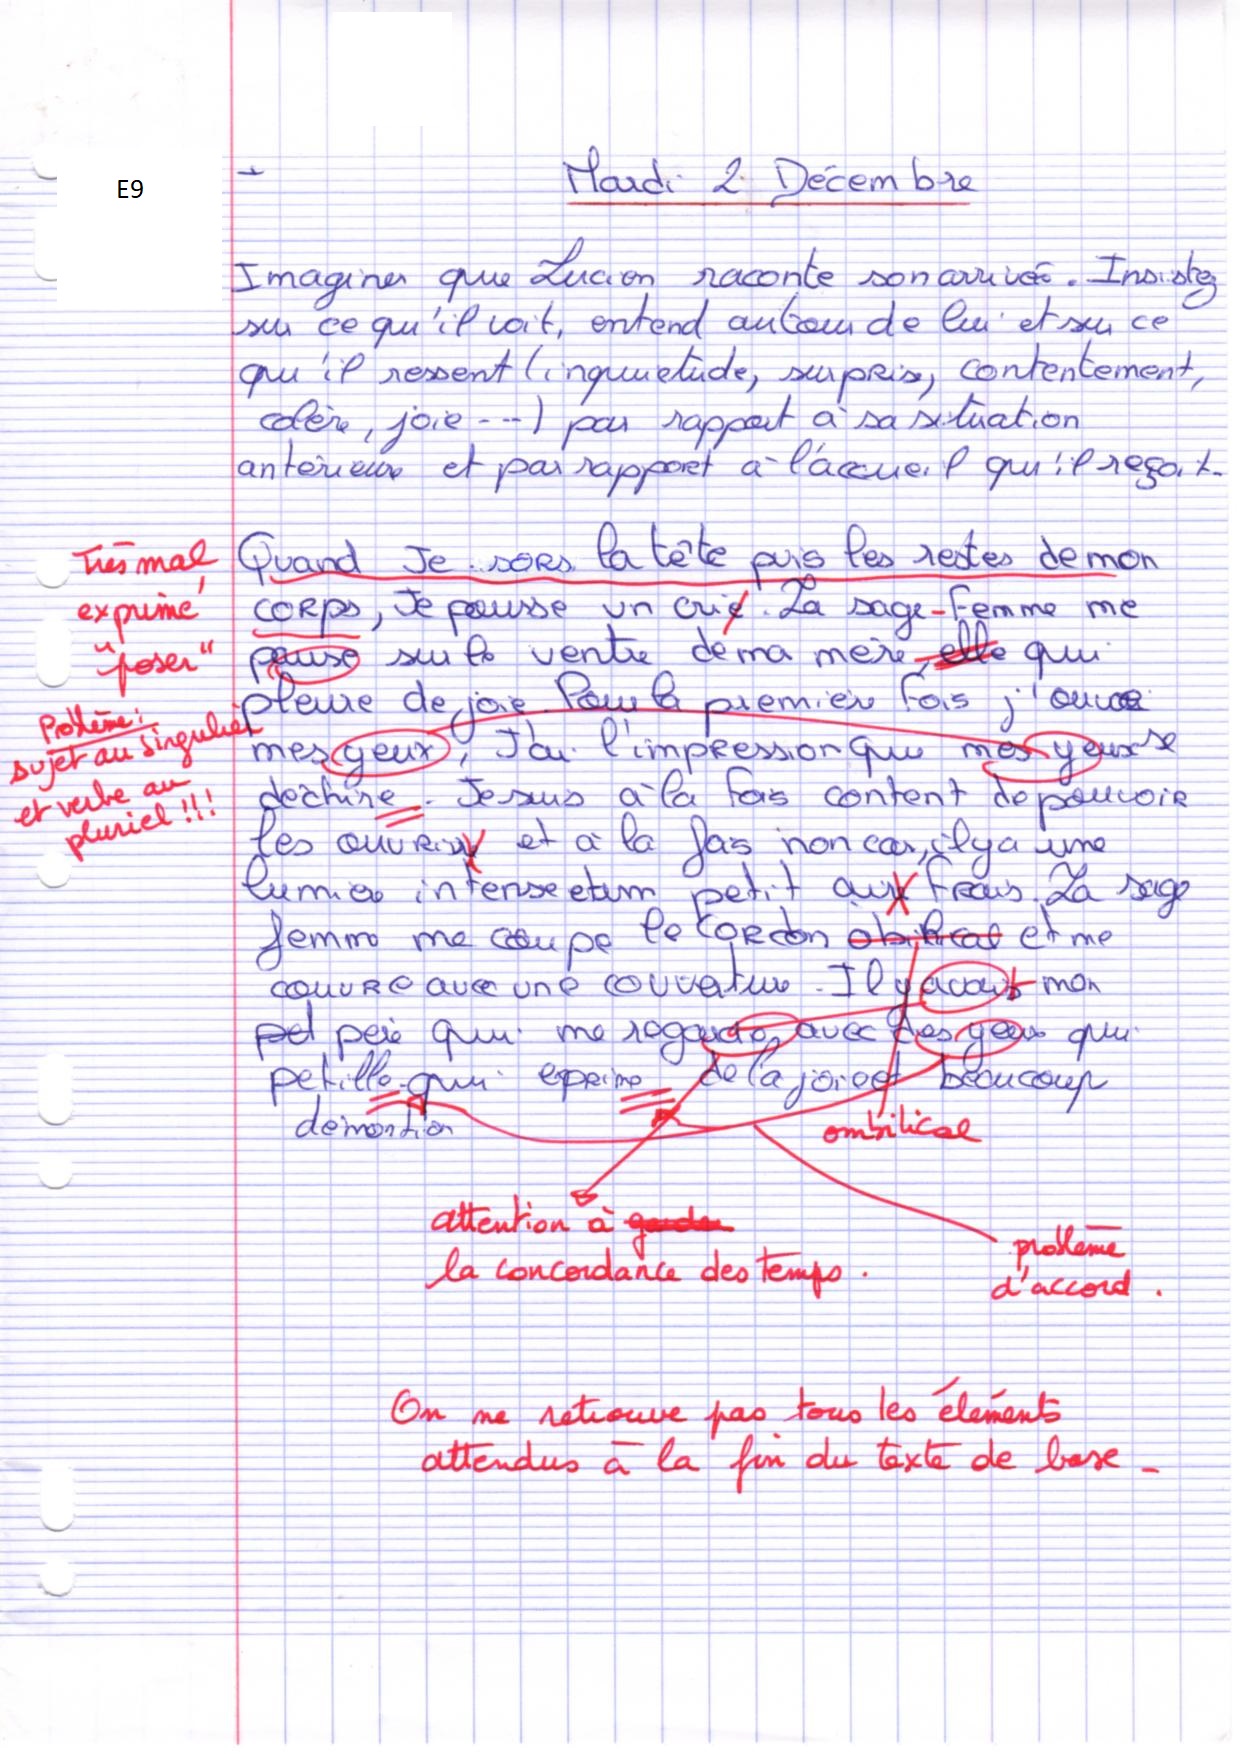 E9
Mardi 2 Décembre
Imaginer que Lucien raconte son arrivée. Insistez
sur ce qu'il voit, entend autour de lui et sur ce
qu'il ressent (inquietude, surpris, contentement,
colère, joie ---) par rapport à sa situation
antérieure et par rapport à l'accueil qu'il reçoit.
Très mal
exprimé
"poser"
Problème:
sujet au singulier
et verbe au
pluriel !!!
Quand Je sors la tête puis les restes de mon
corps, Je pousse un crie. La sage-femme me
pause sur le ventre de ma mère, elle qui
pleure de joie. Pour la premier fois j'ouvre
mes yeux, J'ai l'impression que mes yeux se
déchire. Je suis à la fois content de pouvoir
les ouvrir et à la fois non car, il y a une
lumière intense et un petit aux frais. La sage
femme me coupe le cordon obilical et me
couvre avec une couverture. Il y avait mon
pet père qui me regarde, avec des yeux qui
petille qui exprime de la joie et beaucoup
démontion
ombilical
attention à garder
la concordance des temps.
problème
d'accord.
On ne retrouve pas tous les éléments
attendus à la fin du texte de base -